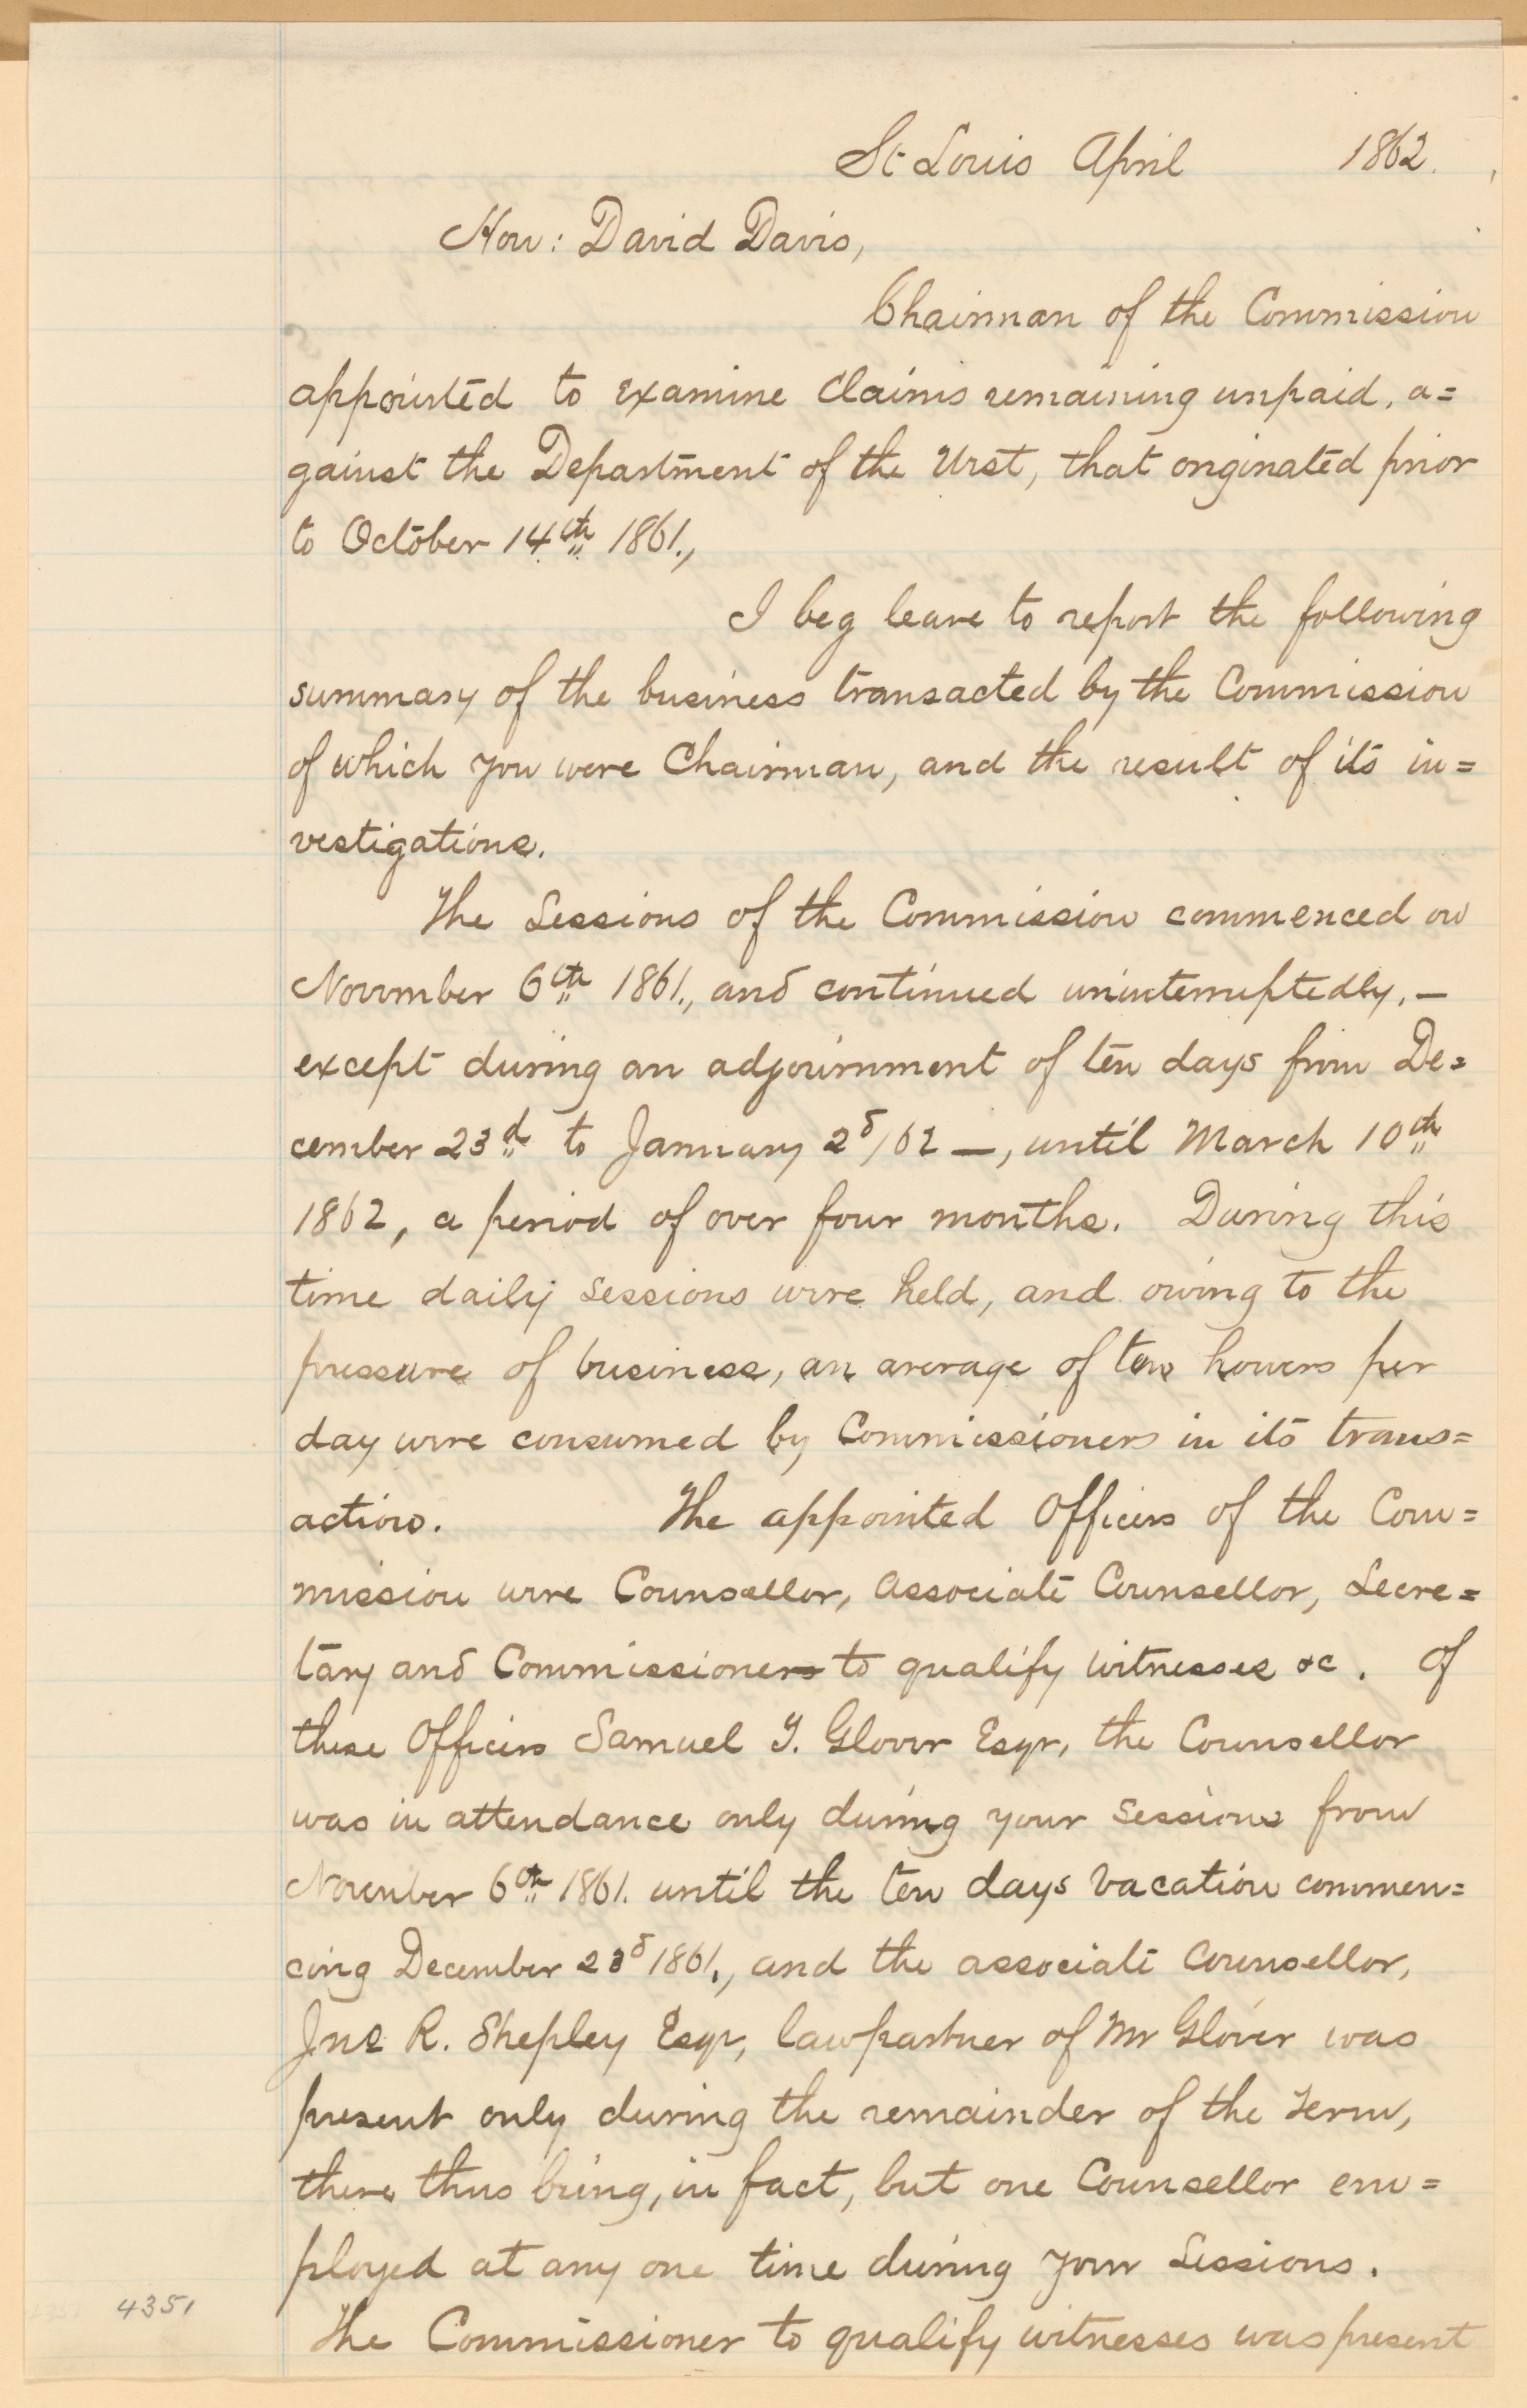 St Louis April 1862.
Hon: David Davis,
Chairman of the Commission
appointed to examine Claims remaining unpaid, a=
gainst the Department of the West, that originated prior
to October 14th 1861.,
I beg leave to report the following
summary of the business transacted by the Commission
of which you were Chairman, and the result of its in=
vestigations.
The Sessions of the Commission commenced on
November 6th 1861., and continued uninterruptedly, —
except during an adjournment of ten days from De=
cember 23d to January 2d/62 —, until March 10th
1862, a period of over four months. During this
time daily sessions were held, and owing to the
pressure of business, an average of ten hours per
day were consumed by Commissioners in its trans=
action. The appointed Officers of the Com=
mission were Counsellor, Associate Counsellor, Secre=
tary and Commissioners to qualify witnesses &c. Of
these Officers Samuel T. Glover Esqr, the Counsellor
was in attendance only during your sessions from
November 6th 1861. until the ten days vacation commen=
cing December 23d 1861., and the associate Counsellor,
Jno R. Shepley Esqr, law partner of Mr Glover was
present only during the remainder of the Term,
there thus being, in fact, but one Counsellor em=
ployed at any one time during your Sessions.
The Commissioner to qualify witnesses was present
4351